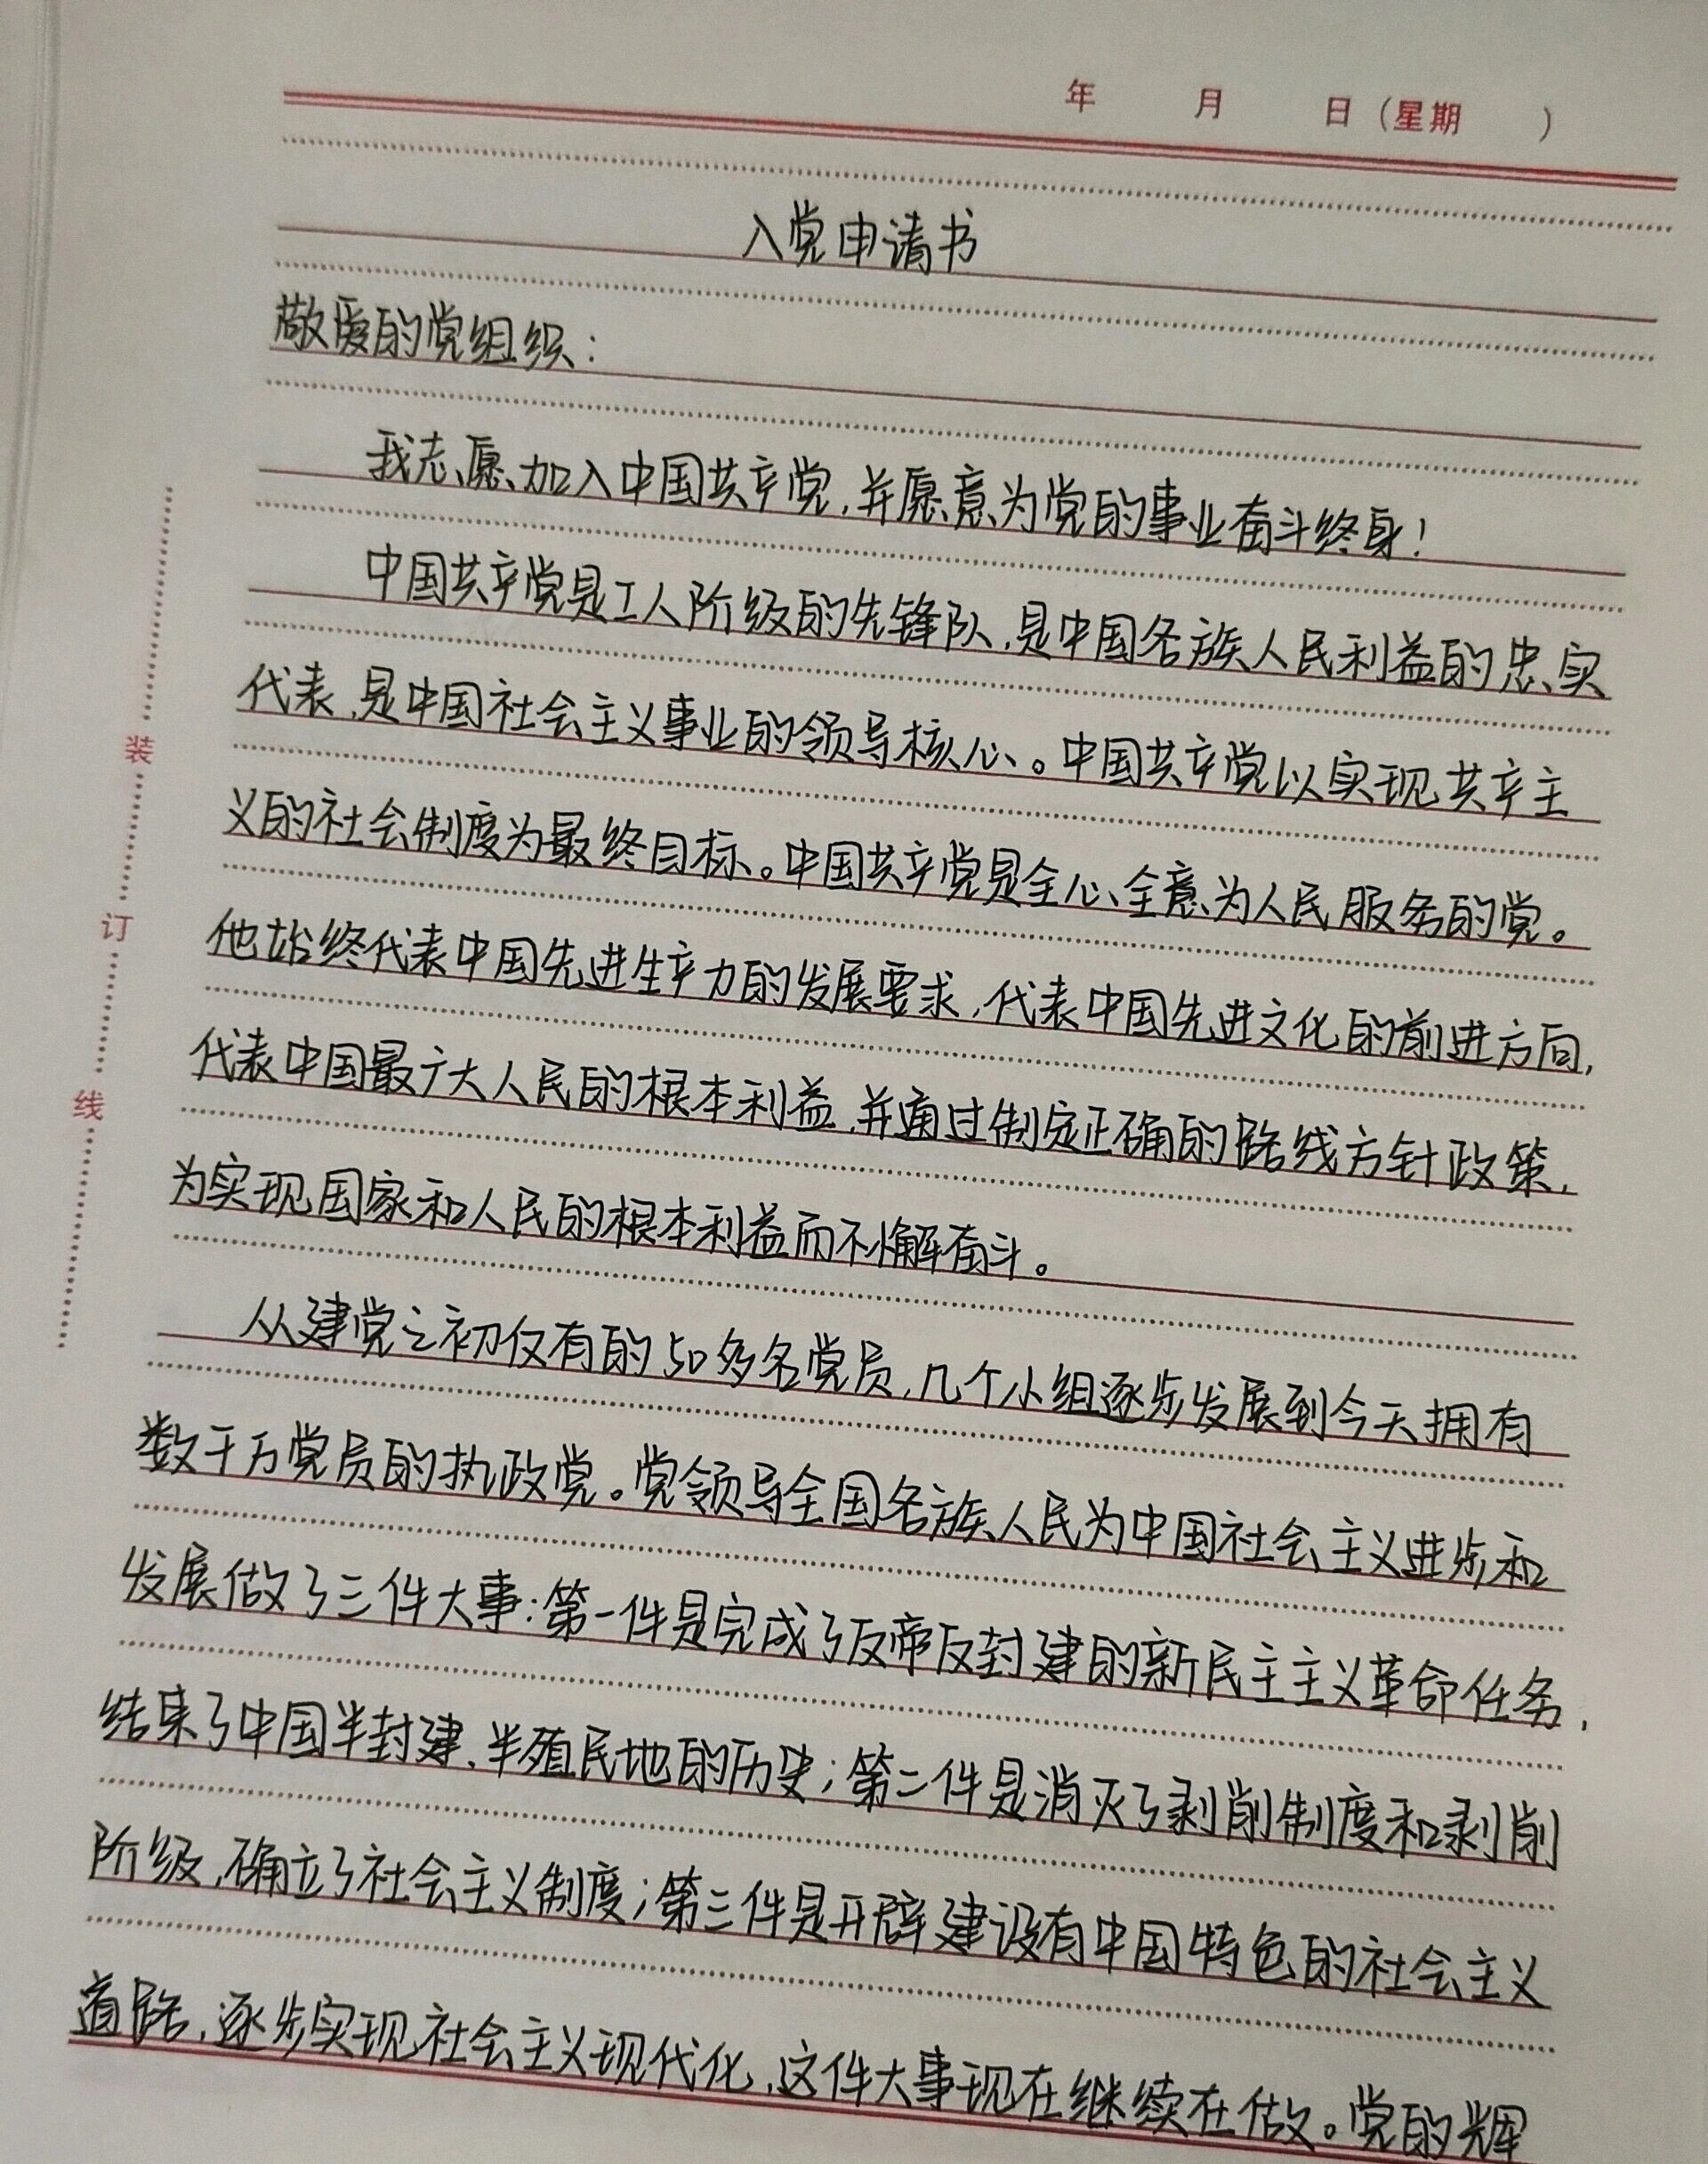 年 月 日（星期 ）
入党申请书
敬爱的党组织：
我志愿加入中国共产党，并愿意为党的事业奋斗终身！
中国共产党是工人阶级的先锋队，是中国各族人民利益的忠实
代表，是中国社会主义事业的领导核心。中国共产党以实现共产主
义的社会制度为最终目标。中国共产党是全心全意为人民服务的党。
他始终代表中国先进生产力的发展要求，代表中国先进文化的前进方向，
代表中国最广大人民的根本利益，并通过制定正确的路线方针政策，
为实现国家和人民的根本利益而不懈奋斗。
从建党之初仅有的50多名党员，几个小组逐步发展到今天拥有
数千万党员的执政党。党领导全国各族人民为中国社会主义进步和
发展做了三件大事：第一件是完成了反帝反封建的新民主主义革命任务，
结束了中国半封建、半殖民地的历史；第二件是消灭了剥削制度和剥削
阶级，确立了社会主义制度；第三件是开辟建设有中国特色的社会主义
道路，逐步实现社会主义现代化，这件大事现在继续在做。党的辉
装
订
线